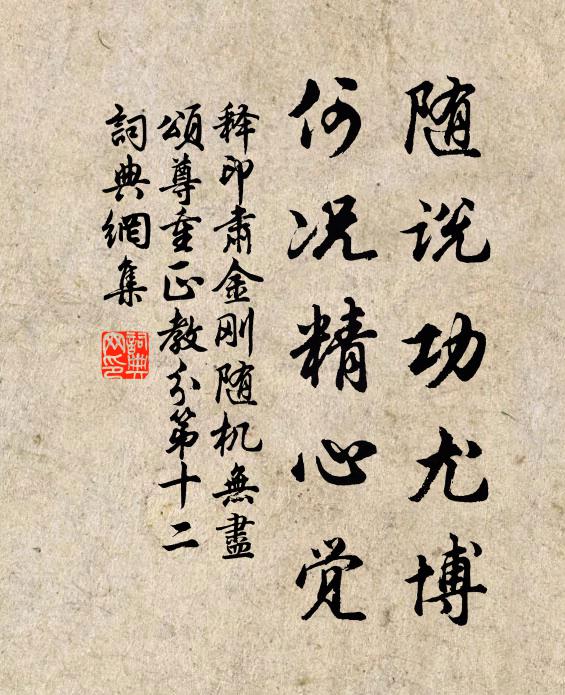 随说功尤博
何况精心觉
释印肃金刚随机無盡
頌尊重正教分第十二
词典網集
詞典
网印